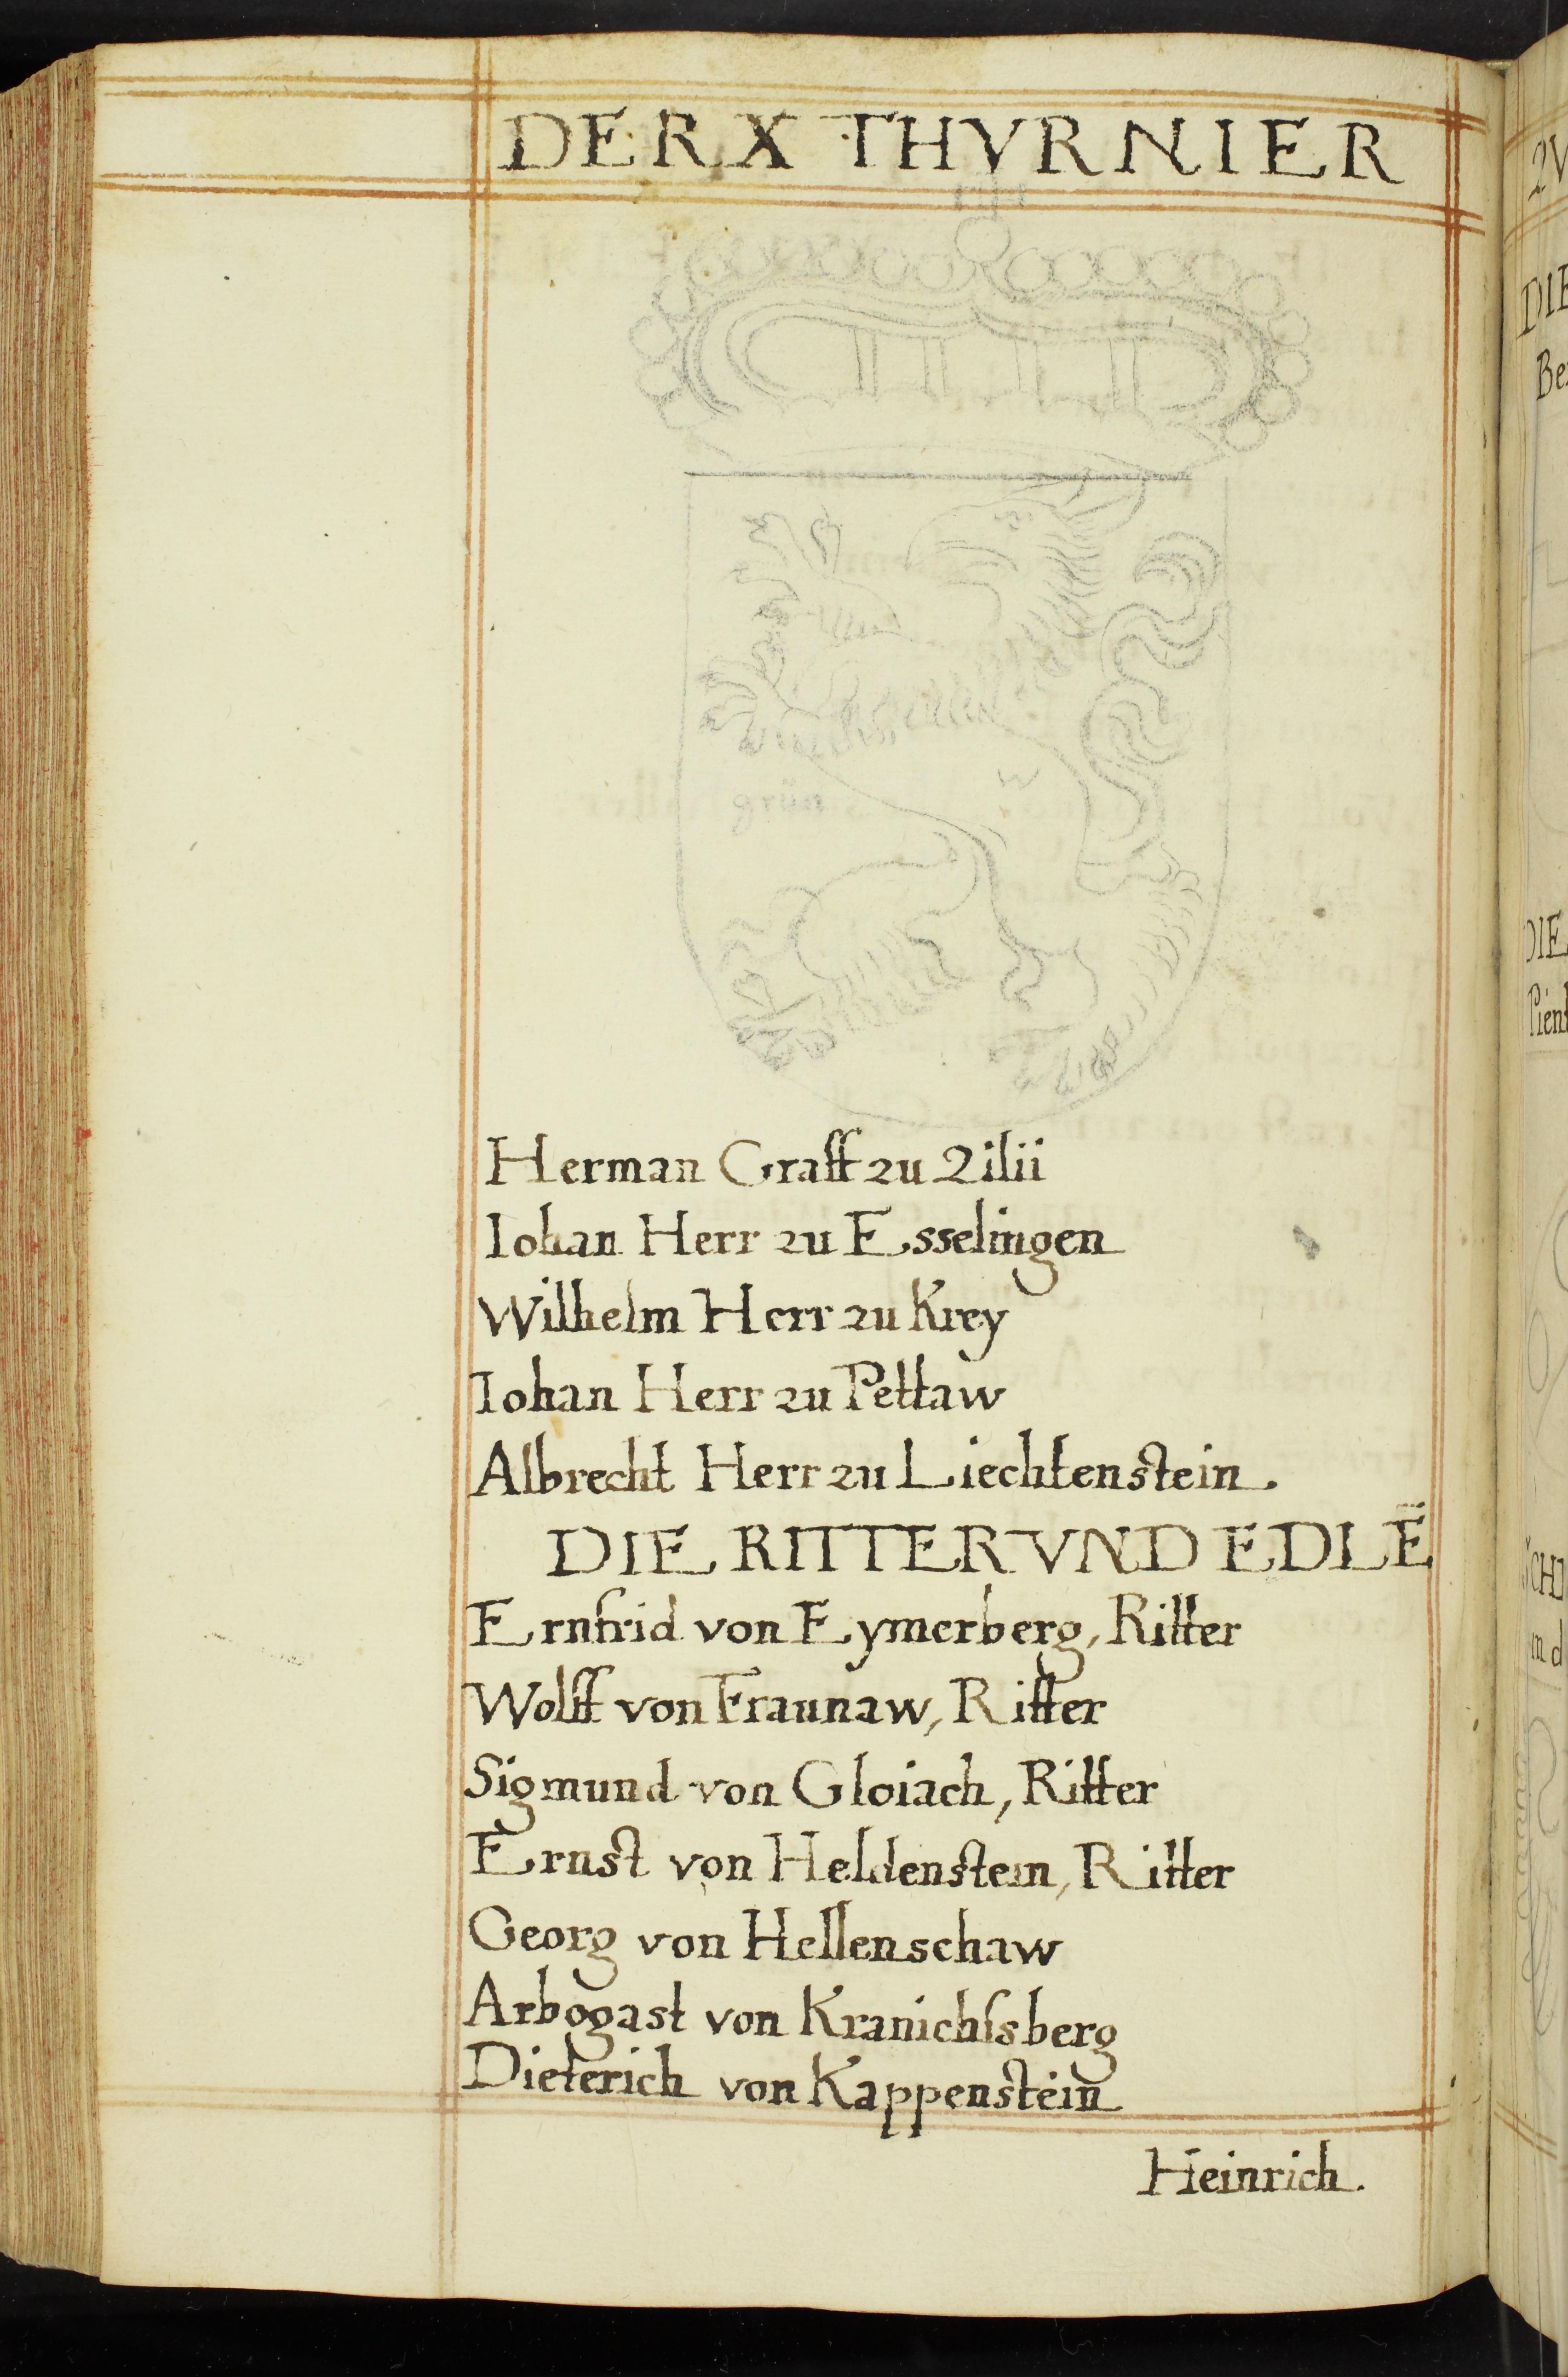 DER X THVRNIER
grün
w
Herman Graff zu Zilii
Iohan Herr zu Esselingen
Wilhelm Herr zu Krey
Iohan Herr zu Pettaw
Albrecht Herr zu Liechtenstein.
DIE RITTER VND EDLĒ
Ernfrid von Eymerberg, Ritter
Wolff von Fraunaw, Ritter
Sigmund von Gloiach, Ritter
Ernst von Heldenstein, Ritter
Georg von Hellenschaw
Arbogast von Kranichsberg
Dieterich von Kappenstein
Heinrich.